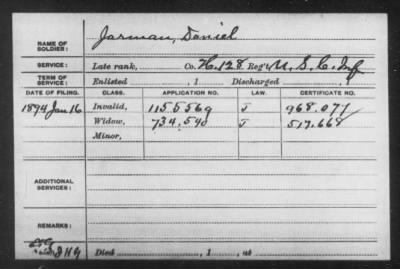 NAME OF SOLDIER: Jarman, Daniel
SERVICE: Late rank, Co. H, 128 Reg't U. S. C. Inf.
TERM OF SERVICE: Enlisted , 1 Discharged , 1
DATE OF FILING. CLASS. APPLICATION NO. LAW. CERTIFICATE NO.
1894 Jan 16 Invalid, 1155569 J 968.077
Widow, 734.540 J 517.668
Minor,
ADDITIONAL SERVICES:
REMARKS:
Died , 1 , at